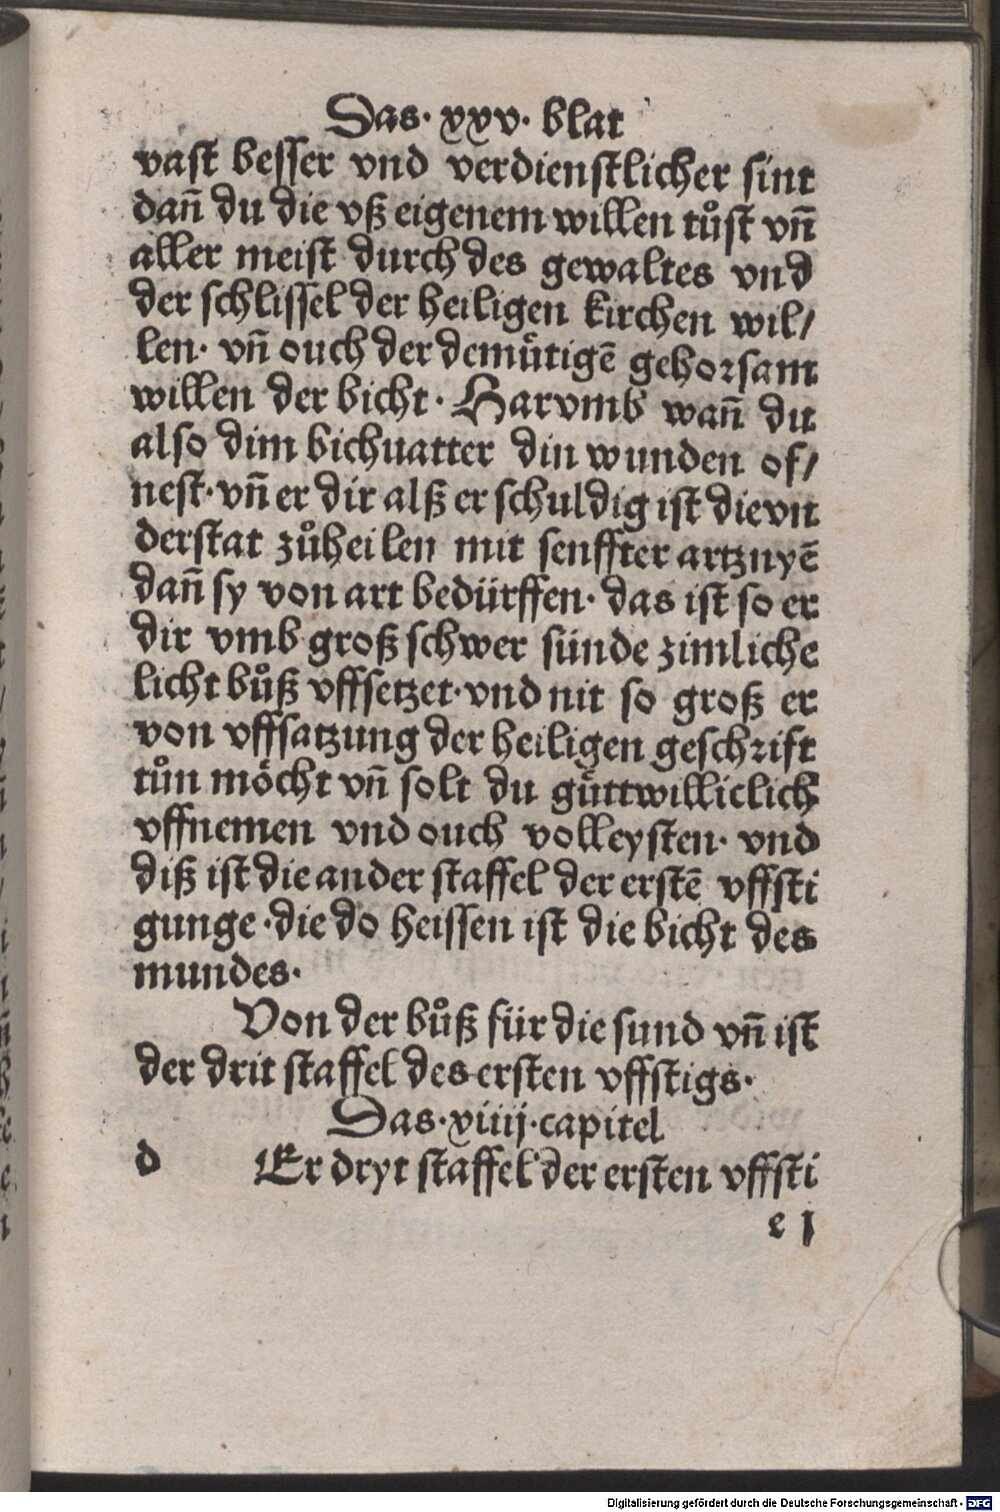 Das· xxv· blat
vast besser vnd verdienstlicher sint
dan̄ du die vß eigenem willen tůst vn̄
aller meist durch des gewaltes vnd
der schlissel der heiligen kirchen wil/
len· vn̄ ouch der demu̇tigē gehorsam
willen der bicht· Harvmb wan̄ du
also dim bichuatter din wunden of/
nest· vn̄ er dir alß er schuldig ist die vn
derstat zůheilen mit senffter artznyē
dan̄ sy von art bedürffen· das ist so er
dir vmb groß schwer sünde zimliche
licht bůß vffsetzet· vnd nit so groß er
von vffsatzung der heiligen geschrift
tůn möcht vn̄ solt du güttwilliclich
vffnemen vnd ouch volleysten· vnd
diß ist die ander staffel der erstē vffsti
gunge· die do heissen ist die bicht des
mundes·
Von der bůß für die sund vn̄ ist
der drit staffel des ersten vffstigs·
Das· xiiij· capitel
d Er dryt staffel der ersten vffsti
e 1
Digitalisierung gefördert durch die Deutsche Forschungsgemeinschaft - DFG